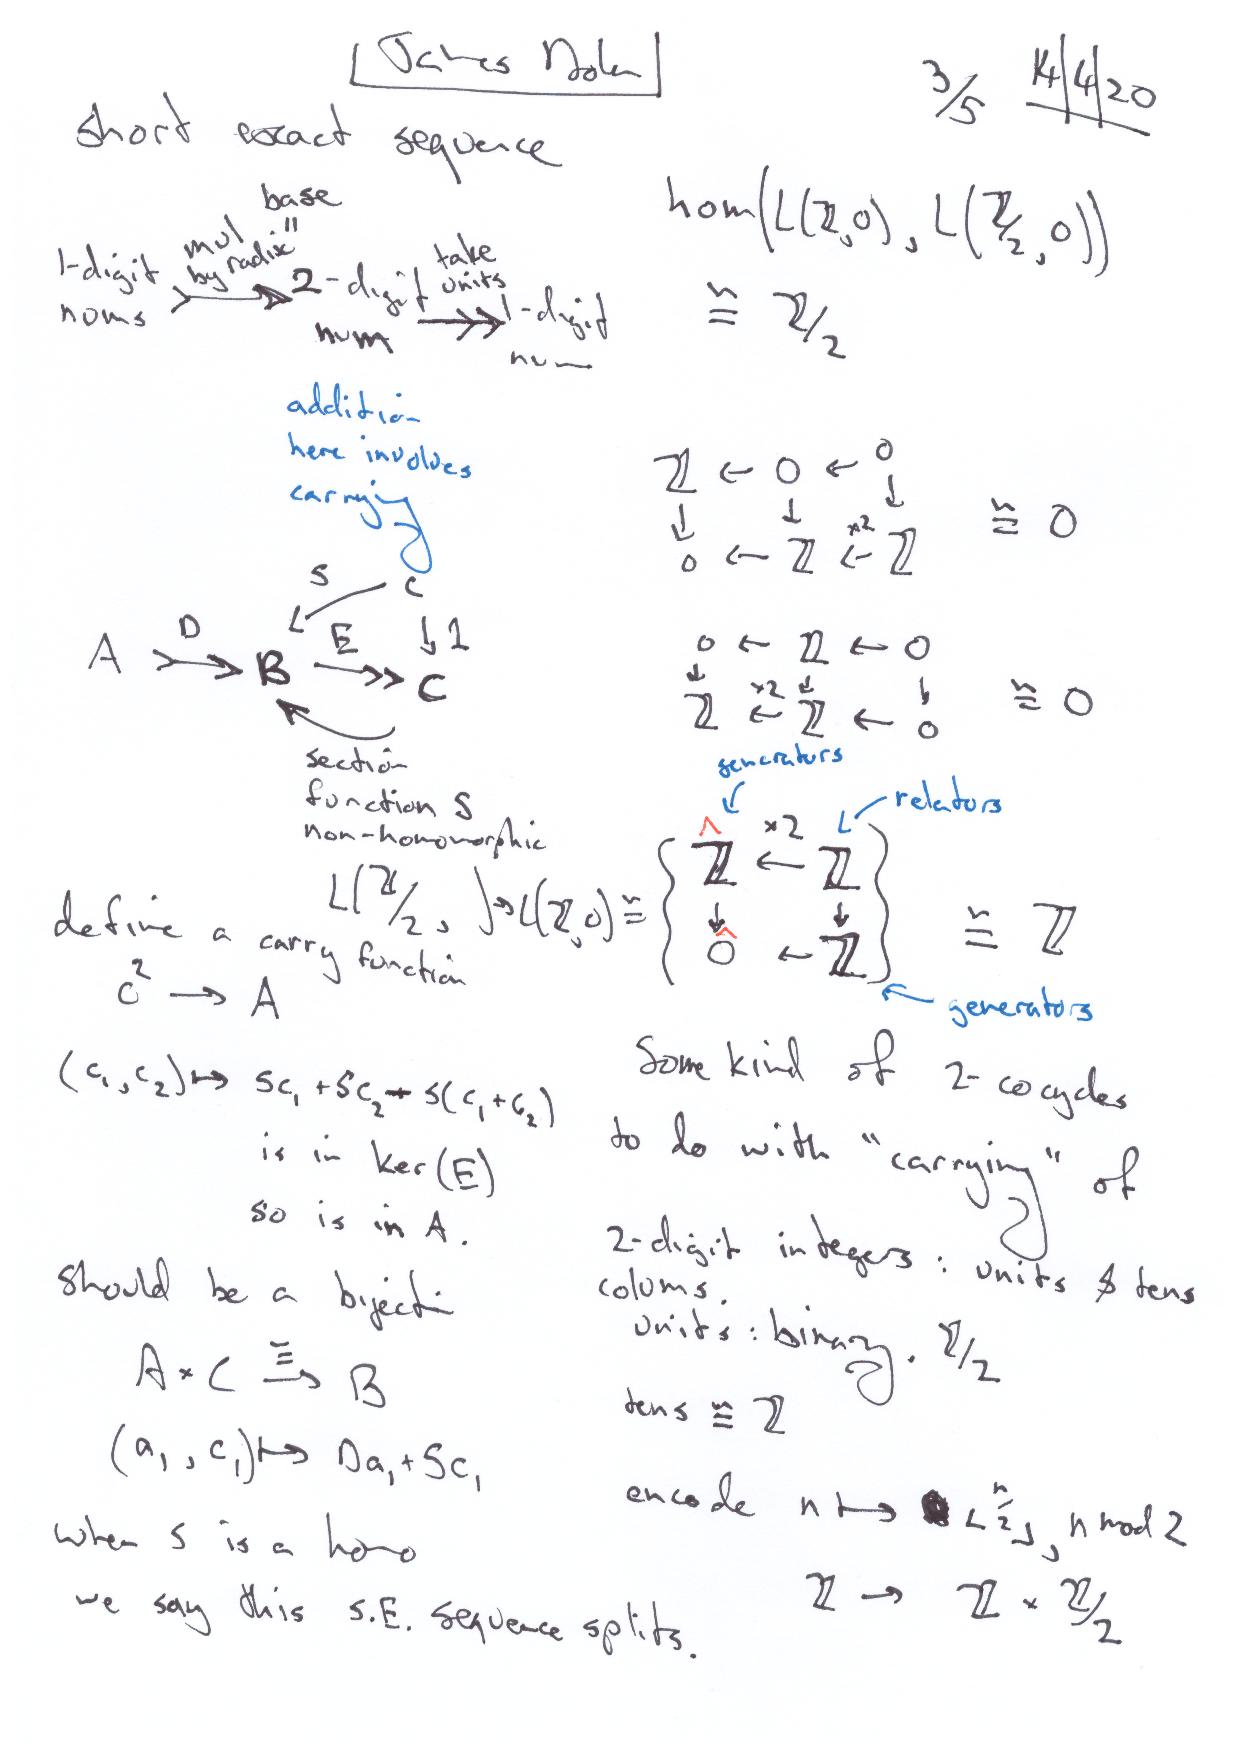 James Dolan
3/5 14/4/20
short exact sequence
1-digit nums
mul by radix "base"
2-digit num
take units
1-digit num
addition
here involves
carrying
S C
A D B E C
↓ 1
section
function S
non-homomorphic
define a carry function
C² → A
(c₁, c₂) ↦ Sc₁ + Sc₂ - S(c₁ + c₂)
is in ker(E)
so is in A.
should be a bijecti
A × C ≅→ B
(a₁, c₁) ↦ Da₁ + Sc₁
when S is a homo
we say this s.E. sequence splits.
hom(L(ℤ,0), L(ℤ/2, 0))
≅ ℤ/2
ℤ ← 0 ← 0
↓ ↓ ↓ ≅ 0
0 ← ℤ ←×2 ℤ
0 ← ℤ ← 0
↓ ↓ ↓ ≅ 0
ℤ ←×2 ℤ ← 0
generators
relators
L(ℤ/2, ) → L(ℤ,0) ≅
ℤ ←×2 ℤ
↓ ↓ ≅ ℤ
0 ← ℤ
generators
Some kind of 2-cocycles
to do with "carrying" of
2-digit integers: units & tens
colums.
units: binary. ℤ/2
tens ≅ ℤ
encode n ↦ ⌊n/2⌋, n mod 2
ℤ → ℤ × ℤ/2